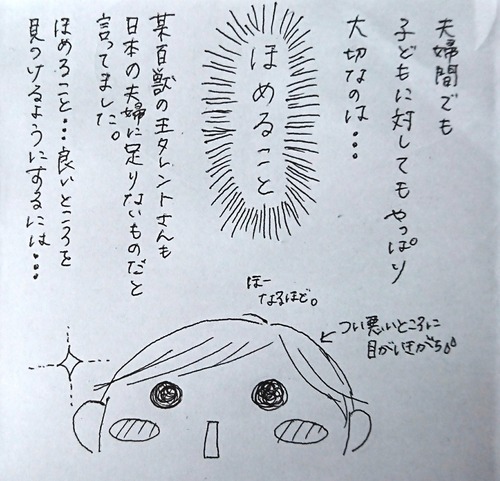 夫婦間でも
子どもに対してもやっぱり
大切なのは・・・
ほめること
某百獣の王タレントさんも
日本の夫婦に足りないものだと
言ってました。
ほめること・・・良いところを
見つけるようにするには・・・
ほー
なるほど。
つい悪いところに
目がいきがち